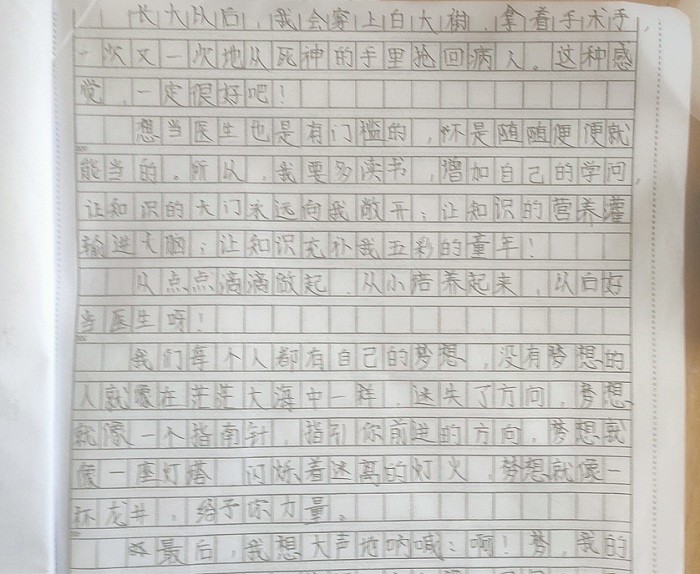 长大以后，我会穿上白大褂，拿着手术手，
一次又一次地从死神的手里抢回病人。这种感
觉，一定很好吧！
想当医生也是有门槛的，怀是随随便便就
能当的。所以，我要多读书，增加自己的学问，
让知识的大门永远向我敞开；让知识的营养灌
输进大脑；让知识充补我五彩的童年！
从点点滴滴做起，从小培养起来，以后好
当医生呀！
我们每个人都有自己的梦想，没有梦想的
人就像在茫茫大海中一样，迷失了方向，梦想
就像一个指南针，指引你前进的方向，梦想就
像一座灯塔 闪烁着迷离的灯火，梦想就像一
杯龙井，给予你力量。
最后，我想大声地呐喊：啊！梦，我的